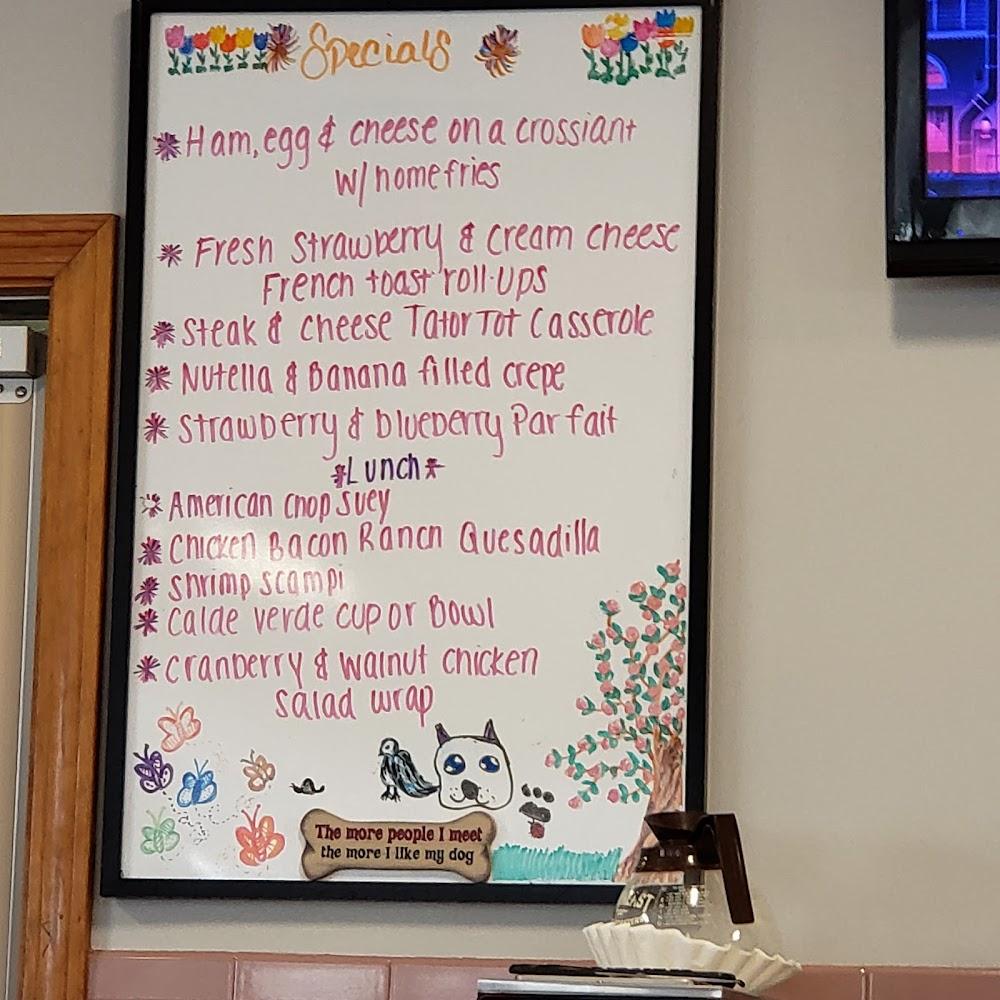 Specials
Ham, egg & cheese on a crossiant
w/ homefries
Fresh Strawberry & Cream cheese
French toast roll-ups
Steak & cheese Tator Tot Casserole
Nutella & Banana filled crepe
Strawberry & blueberry Parfait
*Lunch*
American Chop Suey
Chicken Bacon Ranch Quesadilla
Shrimp scampi
Calde verde cup or Bowl
Cranberry & walnut chicken
salad wrap
The more people I meet
the more I like my dog